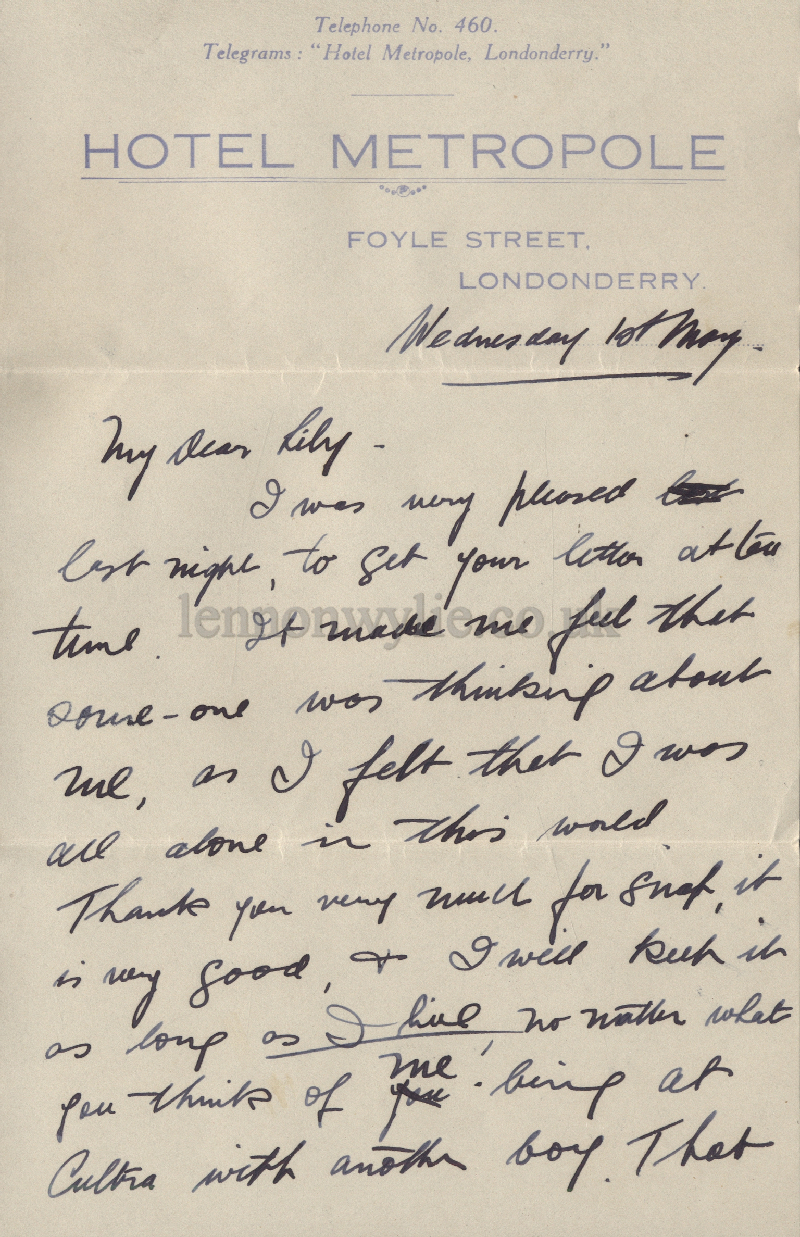 Telephone No. 460.
Telegrams: "Hotel Metropole, Londonderry."
HOTEL METROPOLE
FOYLE STREET,
LONDONDERRY.
Wednesday 1st May.
My Dear Lily -
I was very pleased
last night, to get your letter at tea
time. It made me feel that
some-one was thinking about
me, as I felt that I was
all alone in this world
Thank you very much for snap, it
is very good, & I will keep it
as long as I live, no matter what
you think of me being at
Cultra with another boy. That
lennonwylie.co.uk